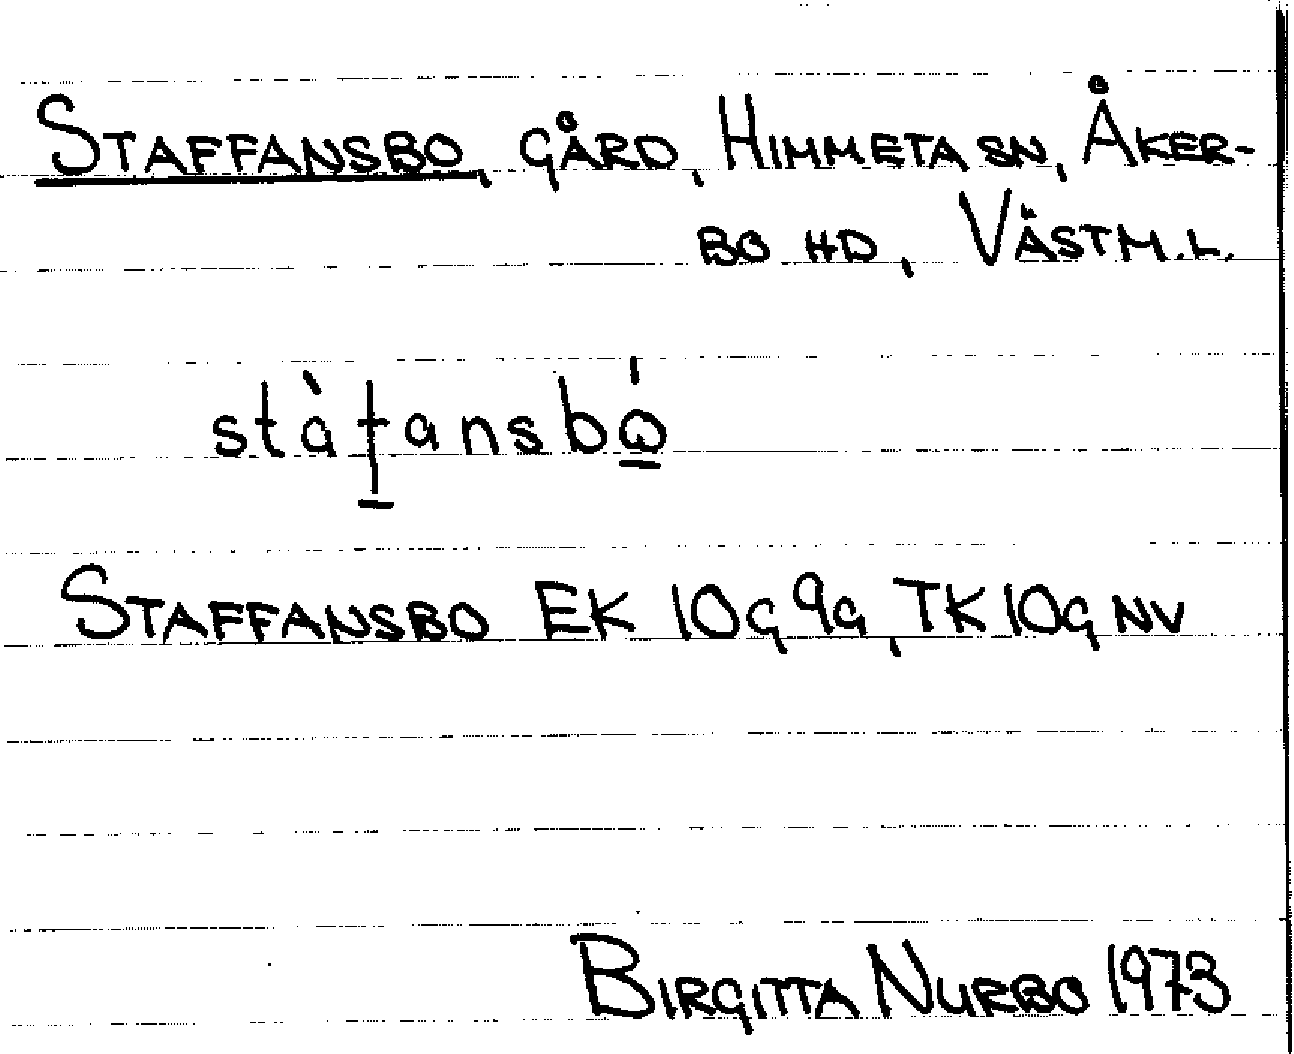 STAFFANSBO, GÅRD, HIMMETA SN, ÅKER-
BO HD, VÄSTM.L.
stàf̠ansbώ̠
STAFFANSBO EK 10G 9g, TK 10G NV
BIRGITTA NURBO 1973